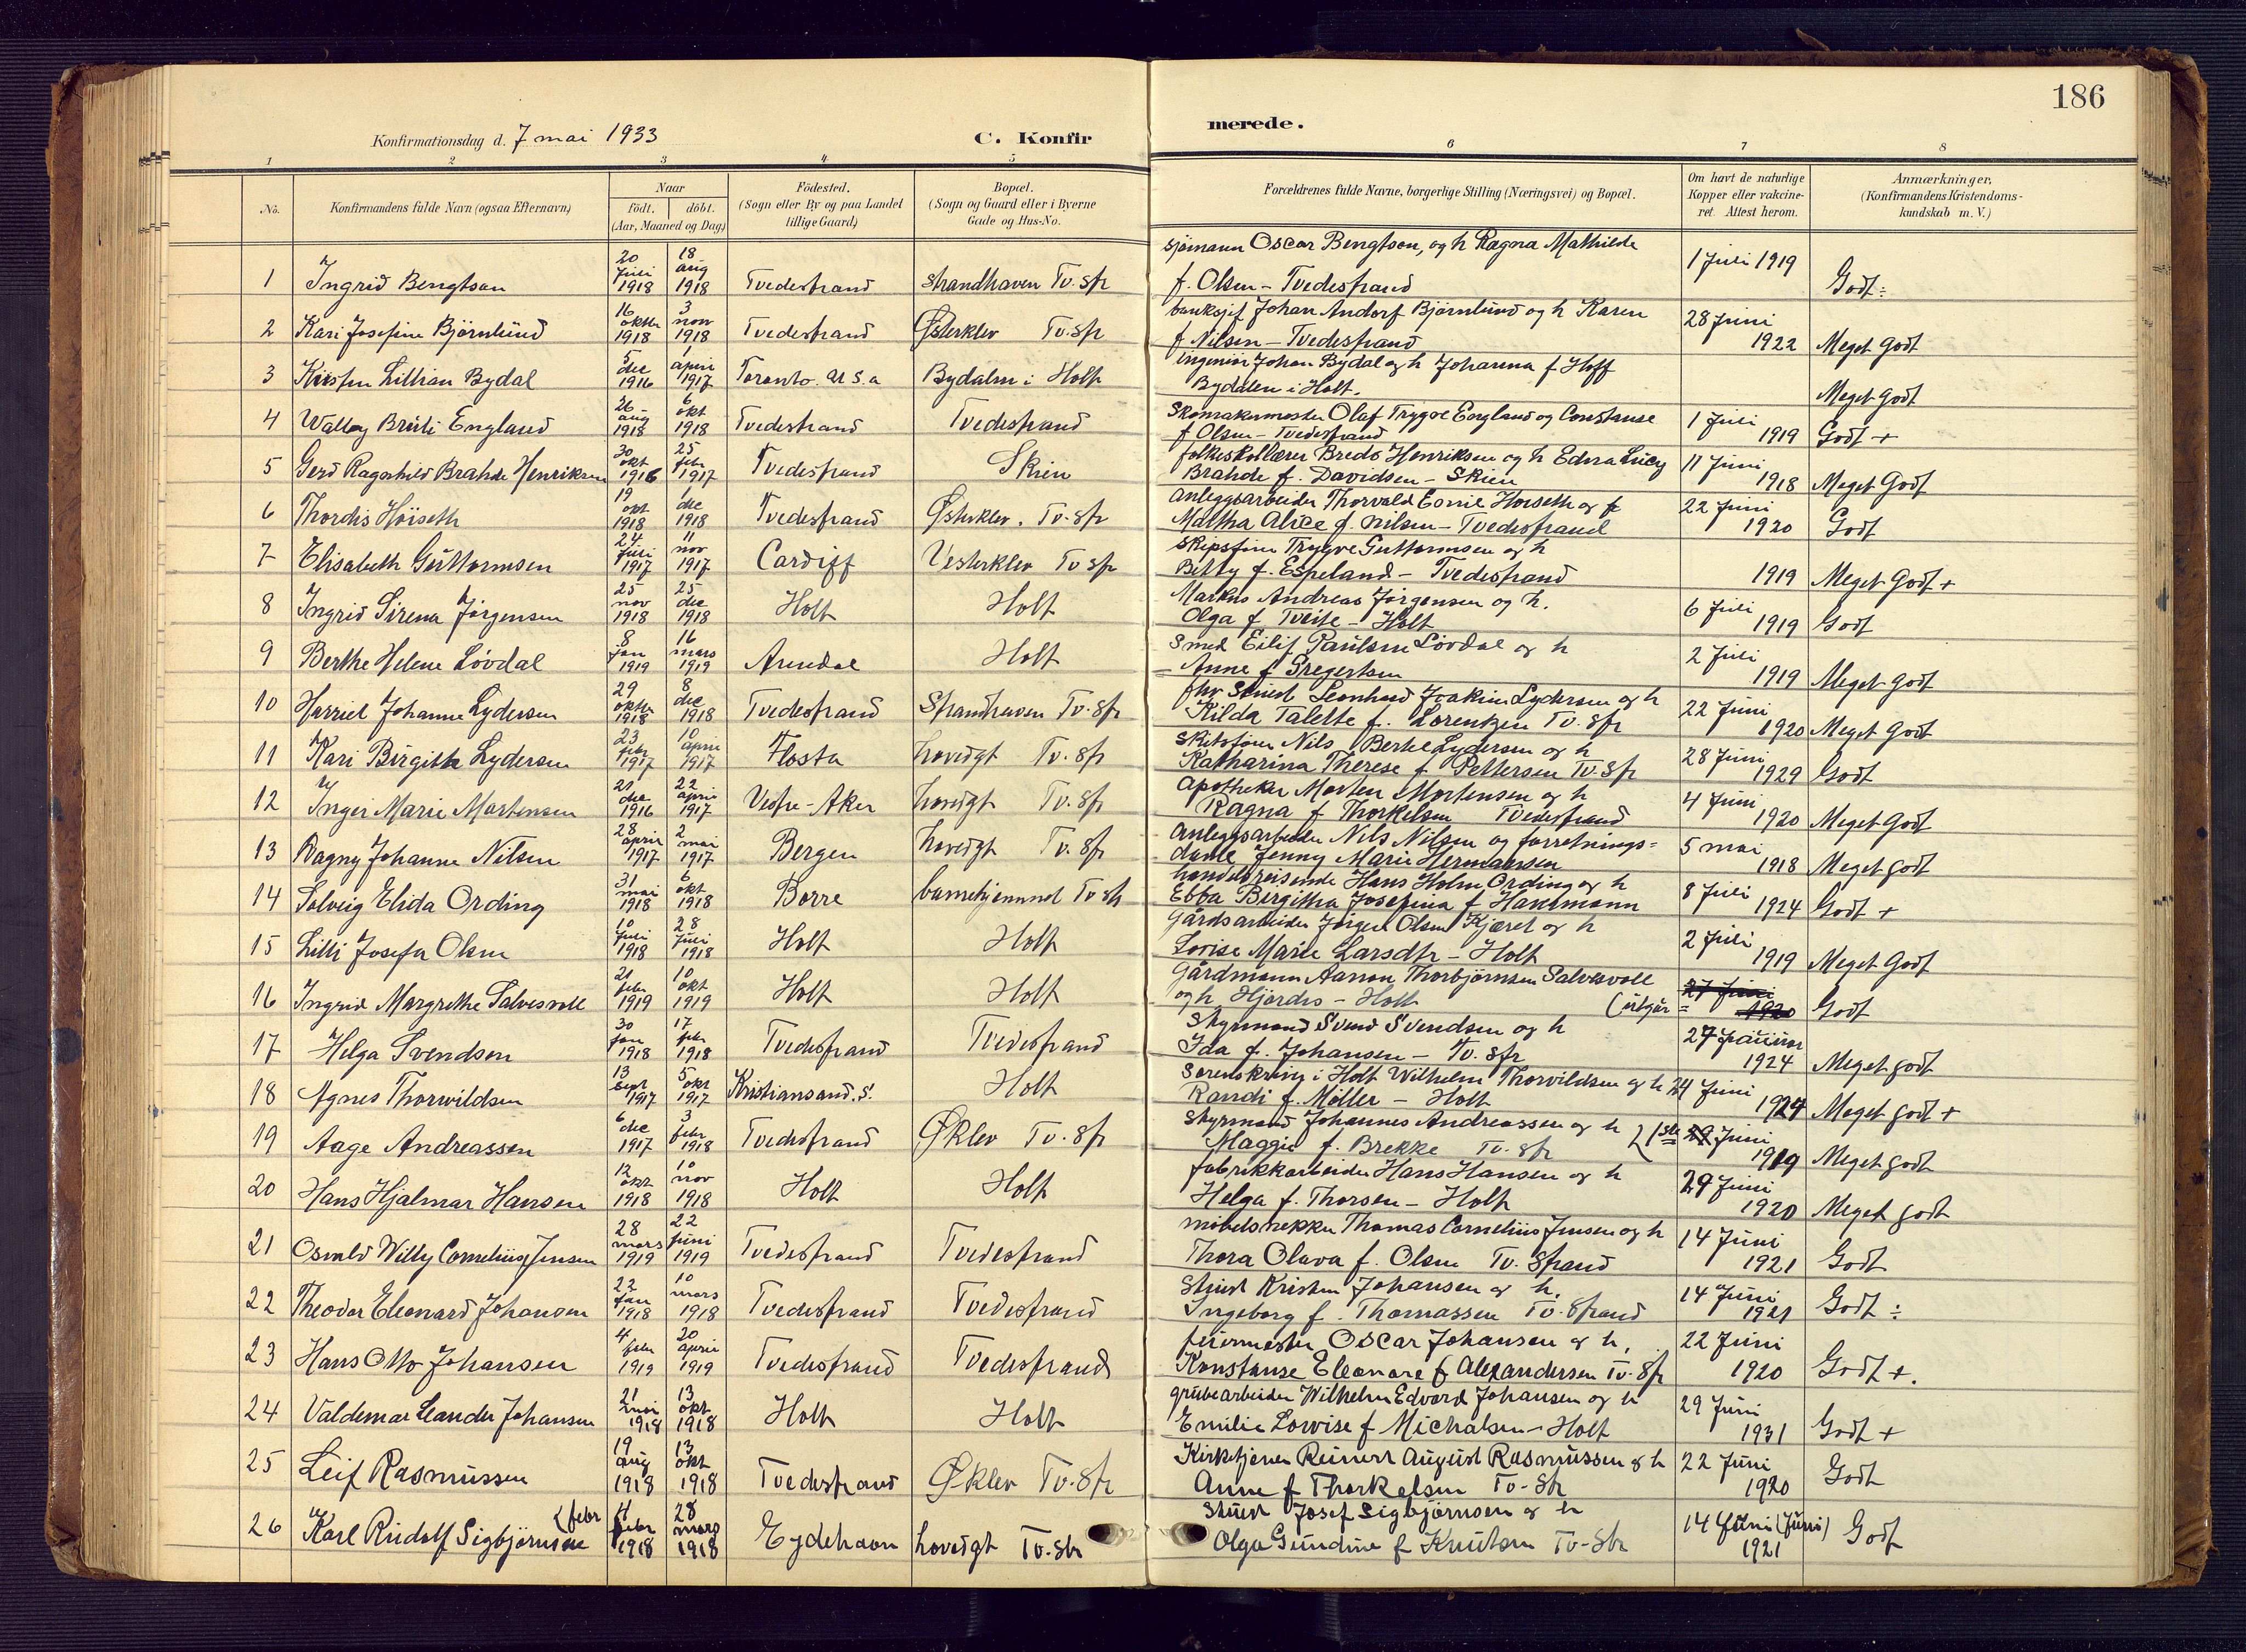 186
Konfirmationsdag d. 7 mai 1933 C. Konfir merede.
1 2 3 4 5 6 7 8
No. Konfirmandens fulde Navn (ogsaa Efternavn) Naar födt. döbt. (Aar, Maaned og Dag) Födested. (Sogn eller By og paa Landet tillige Gaard) Bopæl. (Sogn og Gaard eller i Byerne Gade og Hus-No. Forældrenes fulde Navne, borgerlige Stilling (Næringsvei) og Bopæl. Om havt de naturlige Kopper eller vakcine-ret. Attest herom. Anmærkninger, (Konfirmandens Kristendoms-kundskab m. V.)
1 Ingrid Bengtson 20 Juli 1918 18 aug 1918 Tvedestrand Strandhaven Tv.str Sjömann Oscar Bengtson, og h Ragna Mathilde f. Olsen - Tvedestrand 1 Juli 1919 Godt÷
2 Kari Josefine Björnlund 16 oktbr 1918 3 nov 1918 Tvedestrand Østerklev Tv.str banksjef Johan Andorf Bjørnlund og h Karen f Nilsen - Tvedestrand 28 Juni 1922 Meget Godt
3 Kirsten Lillian Bydal 5 dec 1916 1 april 1917 Toronto. U.S.a Bydalen i Holt Ingeniör Johan Bydal og h Johanna f Hoff Bydalen i Holt. Meget Godt
4 Walley Bruli England 26 aug 1918 6 okt 1918 Tvedestrand Tvedestrand Skomakermester Olaf Trygve England og Constanse f Olsen - Tvedestrand 1 Juli 1919 Godt +
5 Gerd Ragnhild Brahde Henriksen 30 okt 1916 25 febr 1917 Tvedestrand Skien folkeskollærer Bredo Henriksen og h Edna Lucy Brahde f. Davidsen - Skien 11 Juni 1918 Meget Godt
6 Thordis Höiseth 19 okt 1918 1 dec 1918 Tvedestrand Østerklev. Tv.str anleggsarbeider Thorvald Esmil Hoiseth og Maltha Alice f. Nilsen - Tvedestrand 22 Juni 1920 Godt
7 Elisabeth Guttormsen 24 Juli 1917 11 nov 1917 Cardiff Vesterklev Tv str Skipsförer Trygve Guttormsen og h Betty f. Espeland - Tvedestrand 1919 Meget Godt +
8 Ingrid Sirena Jörgensen 25 nov 1918 25 dec 1918 Holt Holt Markus Andreas Jörgensen og h. Olga f Tveite - Holt 6 Juli 1919 Godt
9 Berthe Helene Lövdal 8 jan 1919 16 mars 1919 Arendal Holt Smed Eilif Paulsen Lövdal og h Anne f Gregertsen 2 Juli 1919 Meget godt
10 Harriel Johanne Lydersen 29 oktbr 1918 8 dec 1918 Tvedestrand Strandhaven Tv.str fhv Stuert Leonhard Joakim Lydersen og h Hilda Talette f. Lorentzen Tv.str 22 Juni 1920 Meget Godt
11 Kari Birgith Lydersen 23 febr 1917 10 april 1917 Flosta hovedgt Tv.str Skibsförer Nils Bertel Lydersen og h Katharina Therese f Pettersen Tv.str 28 Juni 1929 Godt
12 Inger Marie Mortensen 21 dec 1916 22 april 1917 Vestre-Aker hovedgt Tv.str Apotheker Morten Mortensen og h Ragna f Thorkelsen Tvedestrand 4 Juni 1920 Meget Godt
13 Dagny Johanne Nilsen 28 april 1917 2 mai 1917 Bergen hovedgt Tv.str anleggsarbeider Nils Nilsen og forretnings= dame Jenny Marie Hermansen 5 mai 1918 Meget godt
14 Solveig Elida Ording 31 mai 1918 6 okt 1918 Borre barnehjemmet Tv str handelsreisende Hans Holm Ording og h Ebba Birgitha Josefina f Hanemann 8 Juli 1924 Godt +
15 Lilli Josefa Olsen 10 Juli 1918 28 Juli 1918 Holt Holt Gårdsarbeider Jörgen Olsen Kjæret og h Lovise Marie Larsdtr - Holt 2 Juli 1919 Meget Godt
16 Ingrid Margrethe Salvesvold 21 febr 1919 10 okt 1919 Holt Holt Gårdmann Aanon Thorbjørnsen Salvesvold og h Hjördis - Holt (utgår= 27 Juni 1920 Godt
17 Helga Svendsen 30 jan 1918 17 febr 1918 Tvedestrand Tvedestrand Styrmand Svend Svendsen og h Ida f. Johansen - Tv.str 27 januar 1924 Meget godt
18 Agnes Thorwildsen 13 sept 1917 5 okt 1917 Kristiansand.S. Holt Sorenskriv i Holt Wilhelm Thorvildsen og h Randi f. Möller - Holt 24 Juni 1924 Meget godt +
19 Aage Andreassen 6 dec 1917 3 febr 1918 Tvedestrand Øklev Tv.str Styrmand Johannes Andreassen og h Maggie f. Brekke Tv.str 21ste Juni 1919 Meget godt
20 Hans Hjalmar Hansen 12 okt 1918 10 nov 1918 Holt Holt fabrikkarbeider Hans Hansen og h Helga f. Thorsen - Holt 29 Juni 1920 Meget godt
21 Osvald Willy Cornelius Jensen 28 mars 1919 22 juni 1919 Tvedestrand Tvedestrand möbelsnekker Thomas Cornelius Jensen og h Thora Olava f. Olsen Tv. Strand 14 Juni 1921 Godt
22 Theodor Eleonard Johansen 22 jan 1918 10 mars 1918 Tvedestrand Tvedestrand Stuert Kristen Johansen og h. Ingeborg f. Thomassen Tv. Strand 14 Juni 1921 Godt ÷
23 Hans Otto Johansen 4 febr 1919 20 april 1919 Tvedestrand Tvedestrand feiermester Oscar Johansen og h, Konstanse Eleonare f Alexandersen Tv.str 22 Juni 1920 Godt +.
24 Valdemar Leander Johansen 21 mai 1918 13 okt 1918 Holt Holt grubearbeider Wilhelm Edvard Johansen og h Emilie Lovise f Michalsen - Holt 29 Juni 1931 Godt +
25 Leif Rasmussen 19 aug 1918 13 okt 1918 Tvedestrand Øklev Tv.Str Kirketjener Reinert August Rasmussen og h Anne f Thorkelsen Tv-Str 22 Juni 1920 Godt
26 Karl Rudolf Sigbjörnsen (febr 4 febr 1918 28 mars 1918 Eydehavn hovedgt Tv.Str Stuert Josef Sigbjørnsen og h Olga Gundine f Knutsen Tv-Str 14 Juni (Juni) 1921 Godt